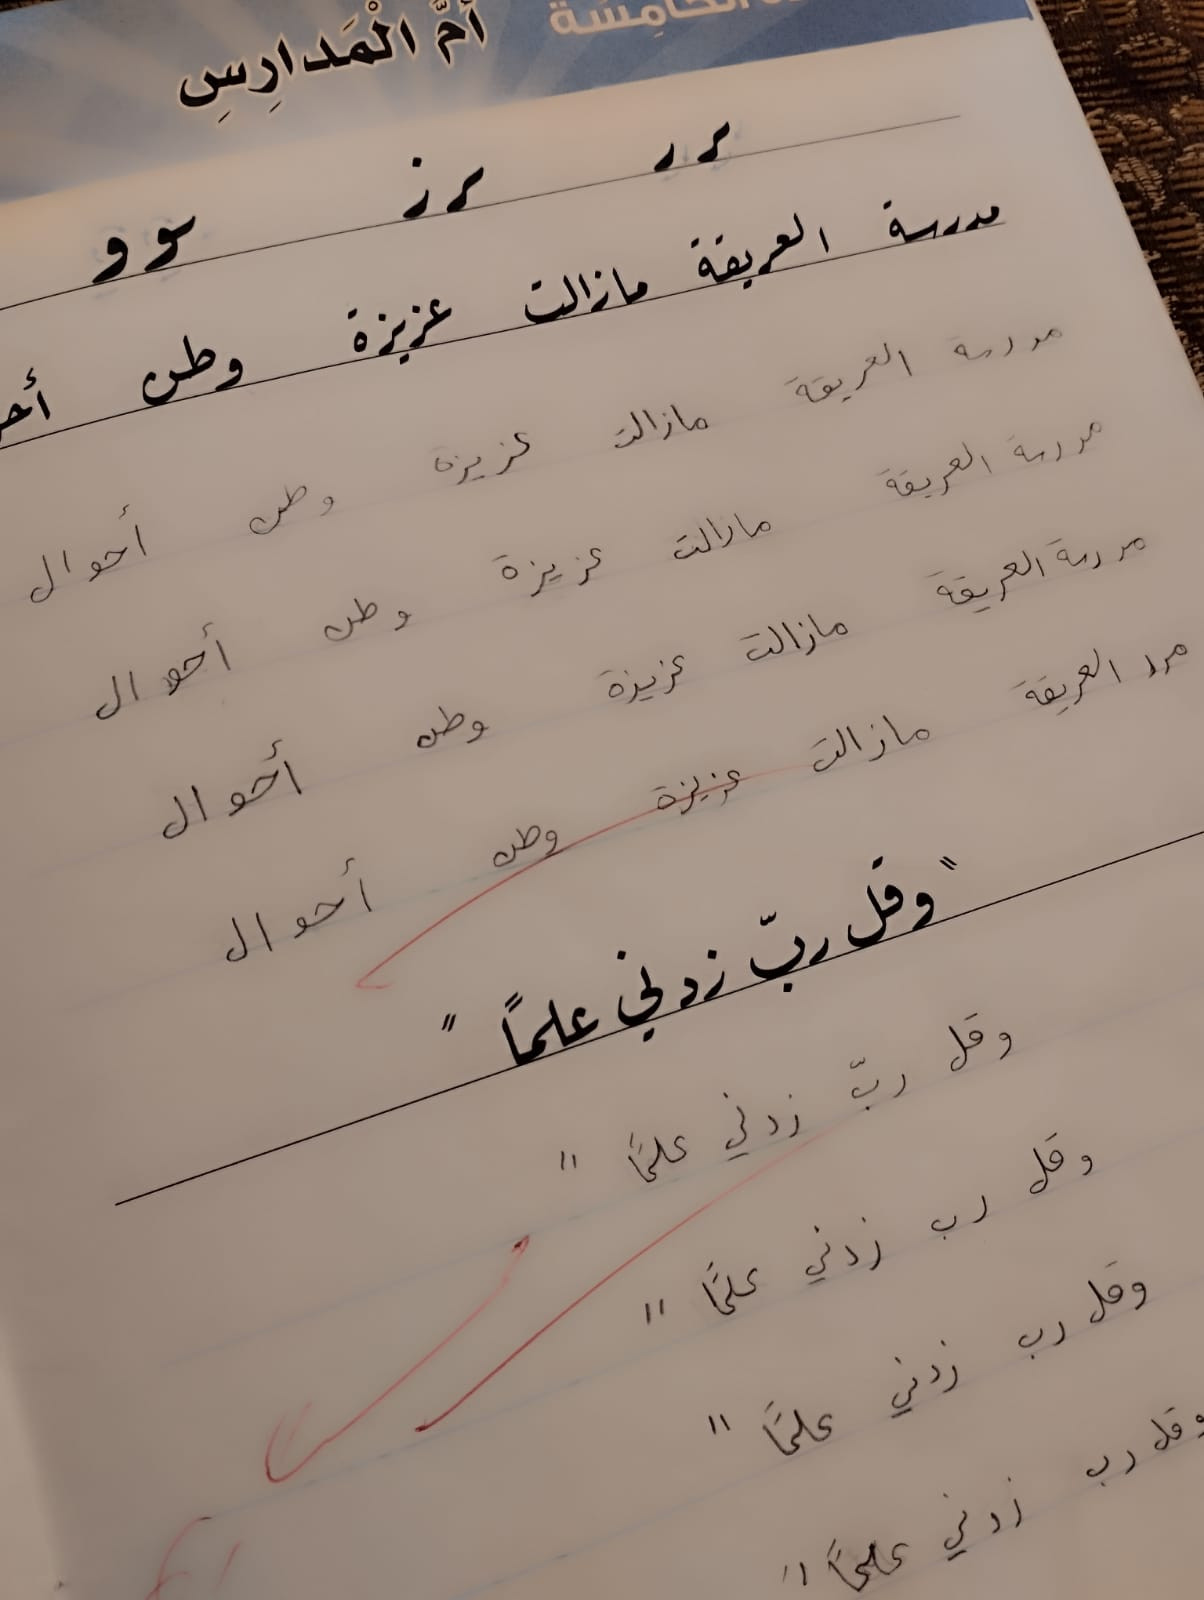 الخامسة أُمُّ الْمَدارِسِ
رر رز وو
مدرسة العريقة مازالت عزيزة وطن
مدرسة العريقة مازالت عزيزة وطن أحوال
مدرسة العريقة مازالت عزيزة وطن أحوال
مدرسة العريقة مازالت عزيزة وطن أحوال
مدر العريقة مازالت عزيزة وطن أحوال
"وقل ربّ زدني علماً"
وقل ربّ زدني علماً "
وقل رب زدني علماً "
وقل رب زدني علماً "
وقل رب زدني علماً "